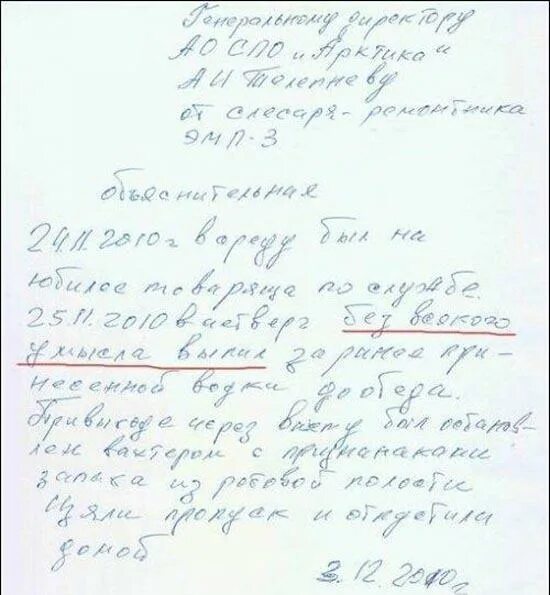 Генеральному директору
АО СПО "Арктика"
А И Телепневу
от слесаря-ремонтника
ЭМП-3
объяснительная
24.11.2010г в среду был на
юбилее товарища по службе.
25.11.2010 в четверг без всякого
умысла выпил заранее при-
несенной водки до обеда.
При выходе через вахту был останов-
лен вахтером с признаками
запаха из ротовой полости
Изяли пропуск и отпустили
домой
3.12.2010г